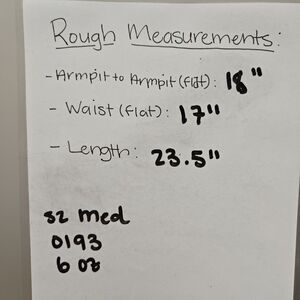 Rough Measurements:
- Armpit to Armpit (flat): 18"
- Waist (flat): 17"
- Length: 23.5"
sz med
0193
6 oz